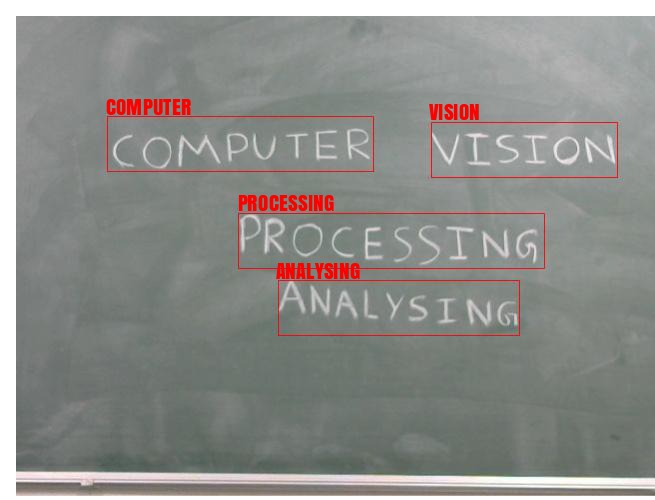 COMPUTER VISION
COMPUTER VISION
PROCESSING
PROCESSING
ANALYSING
ANALYSING